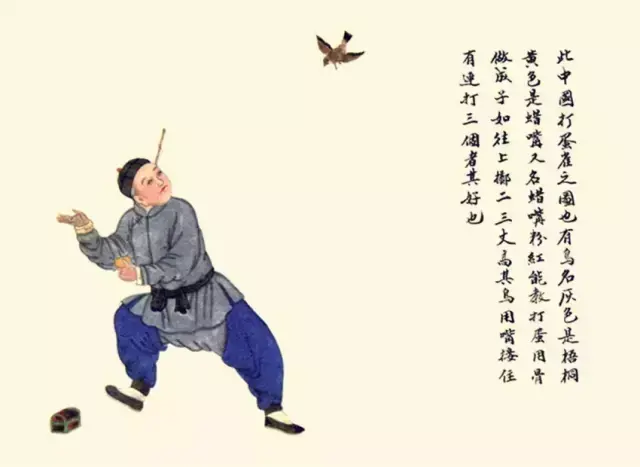 此中國打蛋雀之圖也有鳥名灰色是梧桐
黄色是蜡嘴又名蜡嘴粉紅能教打蛋用骨
做成子如往上擲二三丈高其鳥用嘴接住
有連打三個者其好也